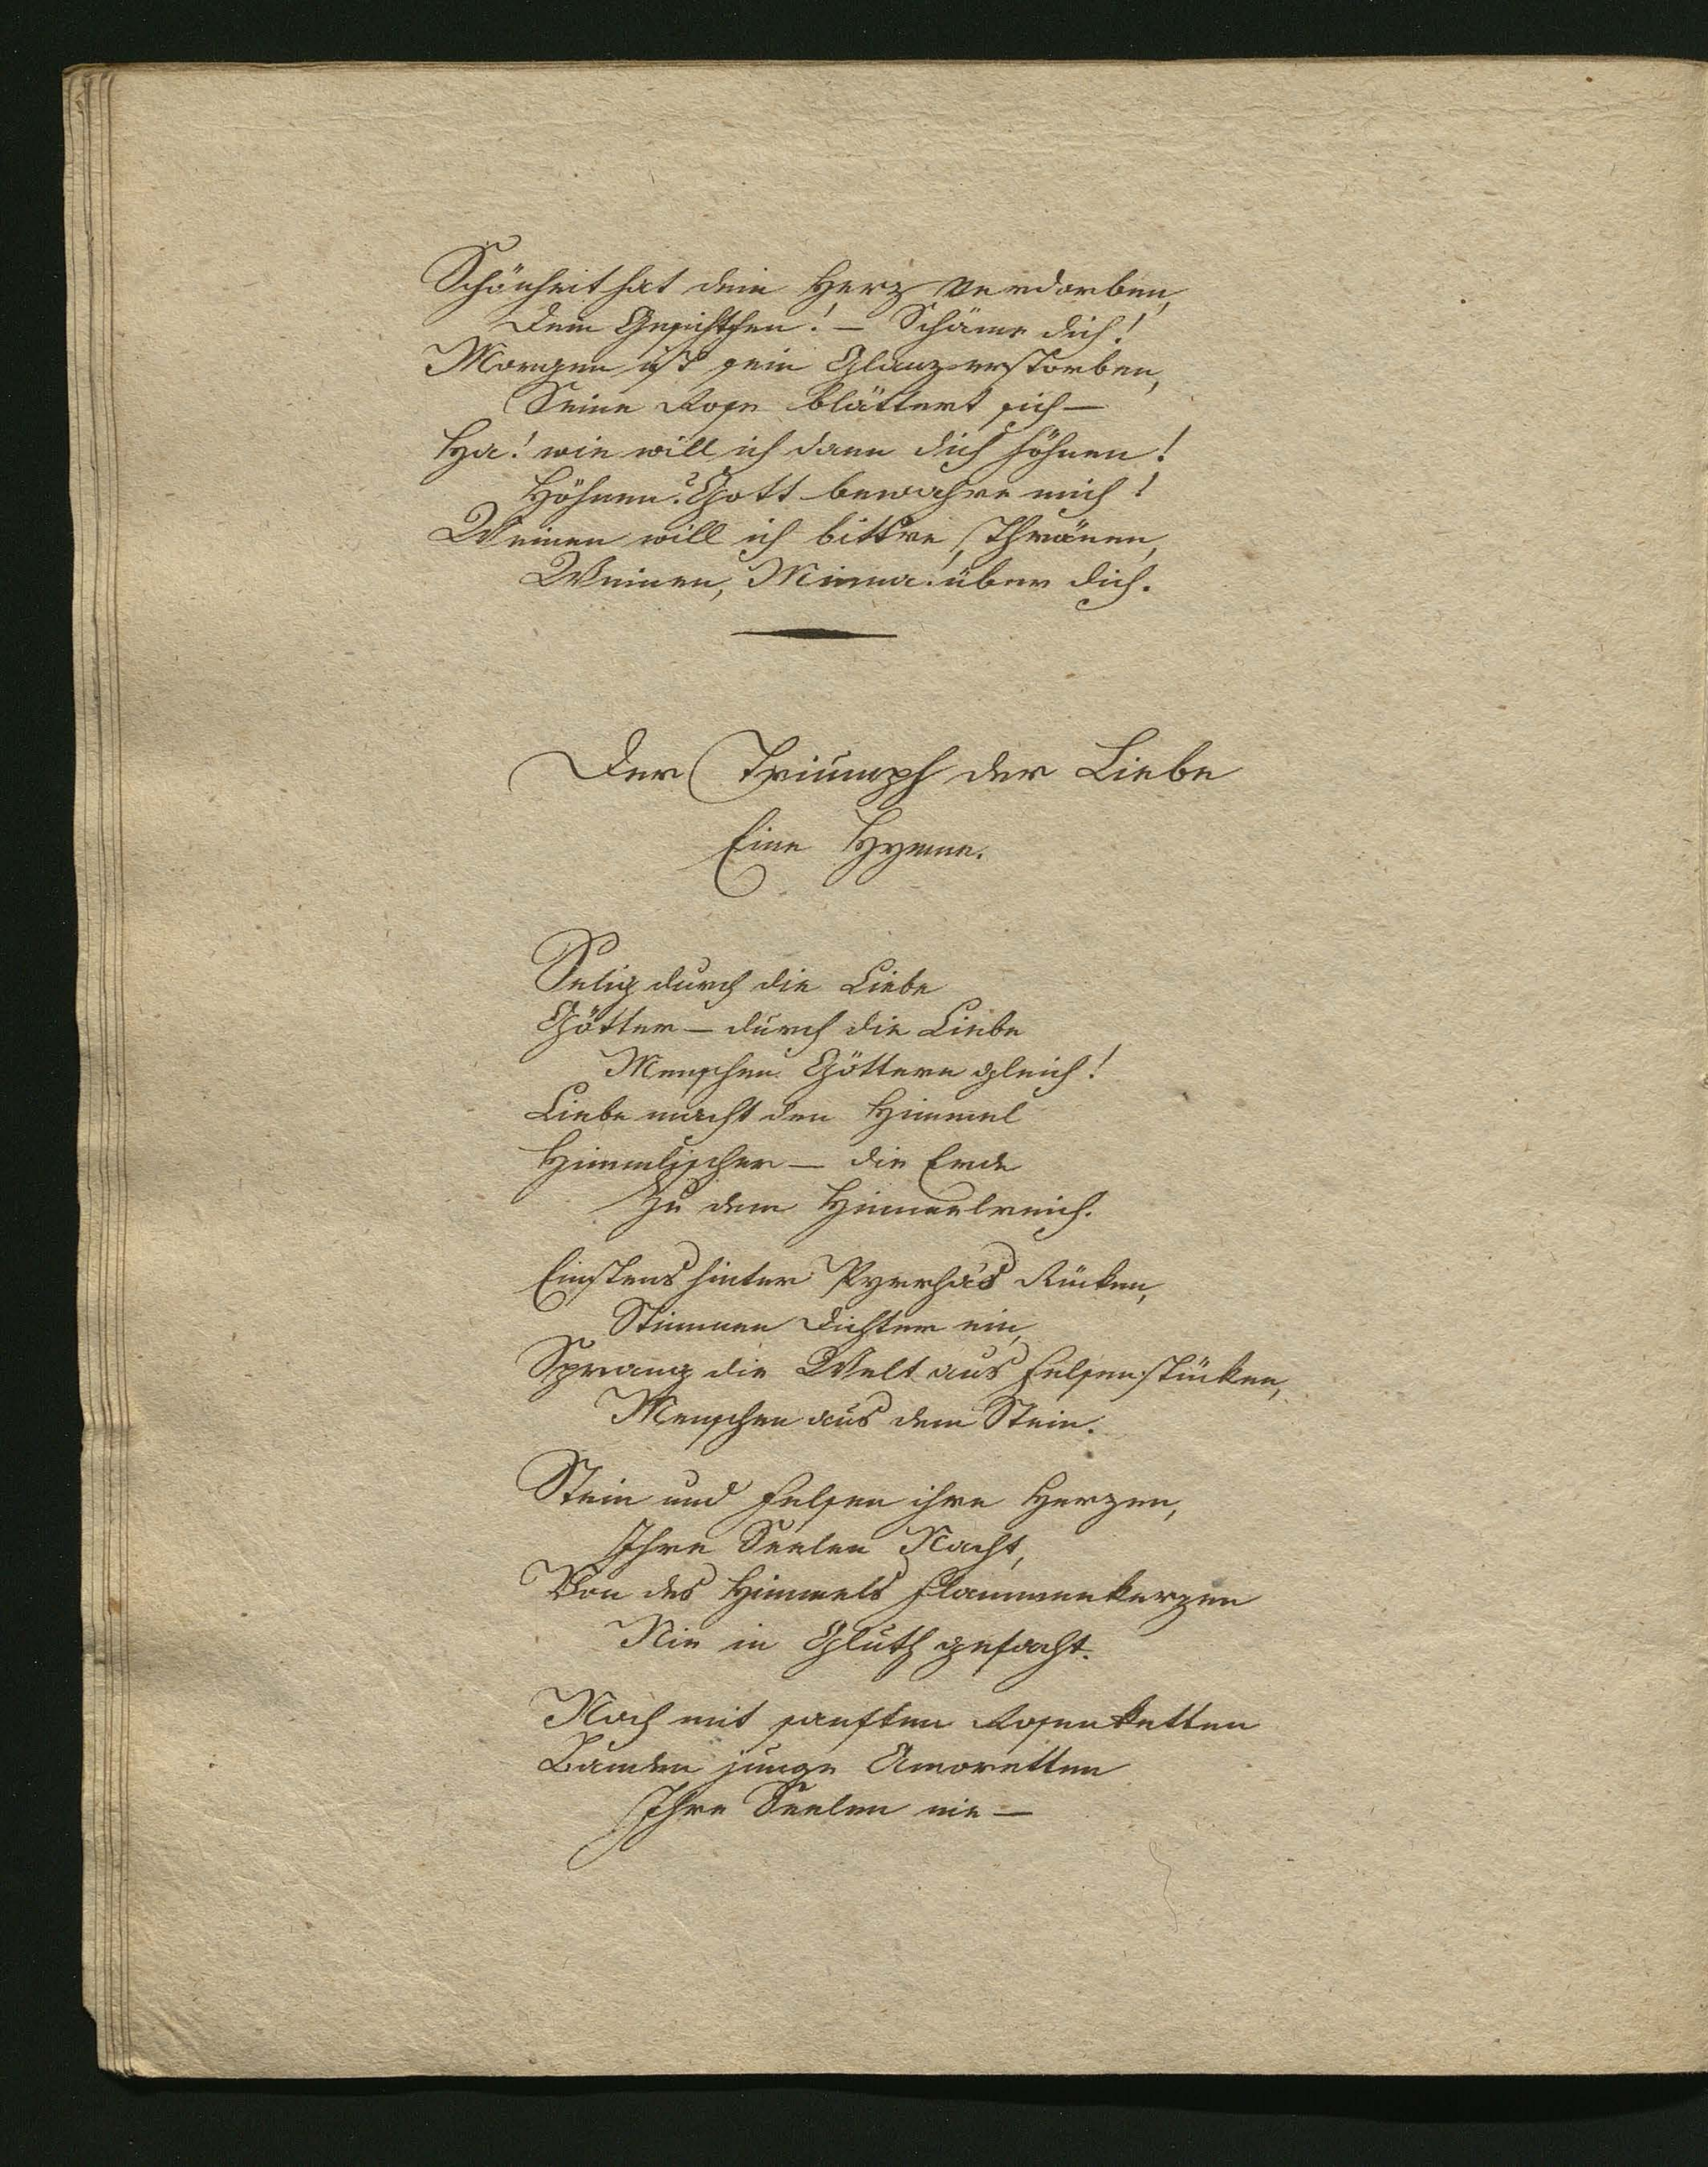 Schönheit hat dein Herz verdorben,
Dein Gesichtchen! – Schäme dich!
Morgen ist sein Glanz erstorben,
Seine Rose blättert sich –
Ha! wie will ich dann dich höhnen!
Höhnen? Gott bewahre mich!
Weinen will ich bittre Thränen,
Weinen, Minna! über dich.
Der Triumph der Liebe
Eine Hymne.
Selig durch die Liebe
Götter – durch die Liebe
Menschen Göttern gleich!
Liebe macht den Himmel
Himmlischer – die Erde
Zu dem Himmelreich.
Einstens hinter Pyrrha's Rücken,
Stimmen Dichter ein,
Sprang die Welt aus Felsenstücken,
Menschen aus dem Stein.
Stein und Felsen ihre Herzen,
Ihre Seelen Nacht,
Von des Himmels Flammenkerzen
Nie in Gluth gefacht.
Noch mit sanften Rosenketten
Banden junge Amoretten
Ihre Seelen nie –